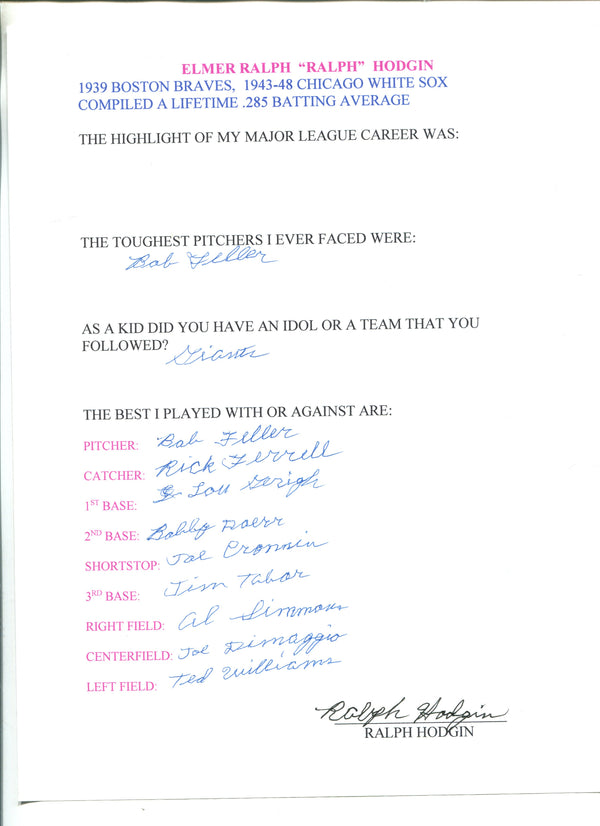 ELMER RALPH “RALPH” HODGIN
1939 BOSTON BRAVES, 1943-48 CHICAGO WHITE SOX
COMPILED A LIFETIME .285 BATTING AVERAGE
THE HIGHLIGHT OF MY MAJOR LEAGUE CAREER WAS:
THE TOUGHEST PITCHERS I EVER FACED WERE:
Bob Feller
AS A KID DID YOU HAVE AN IDOL OR A TEAM THAT YOU
FOLLOWED? Giants
THE BEST I PLAYED WITH OR AGAINST ARE:
PITCHER: Bob Feller
CATCHER: Rick Ferrell
1ST BASE: Lou Gerigh
2ND BASE: Bobby Doerr
SHORTSTOP: Joe Cronnin
3RD BASE: Jim Tabor
RIGHT FIELD: Al Simmons
CENTERFIELD: Joe Dimaggio
LEFT FIELD: Ted Williams
Ralph Hodgin
RALPH HODGIN